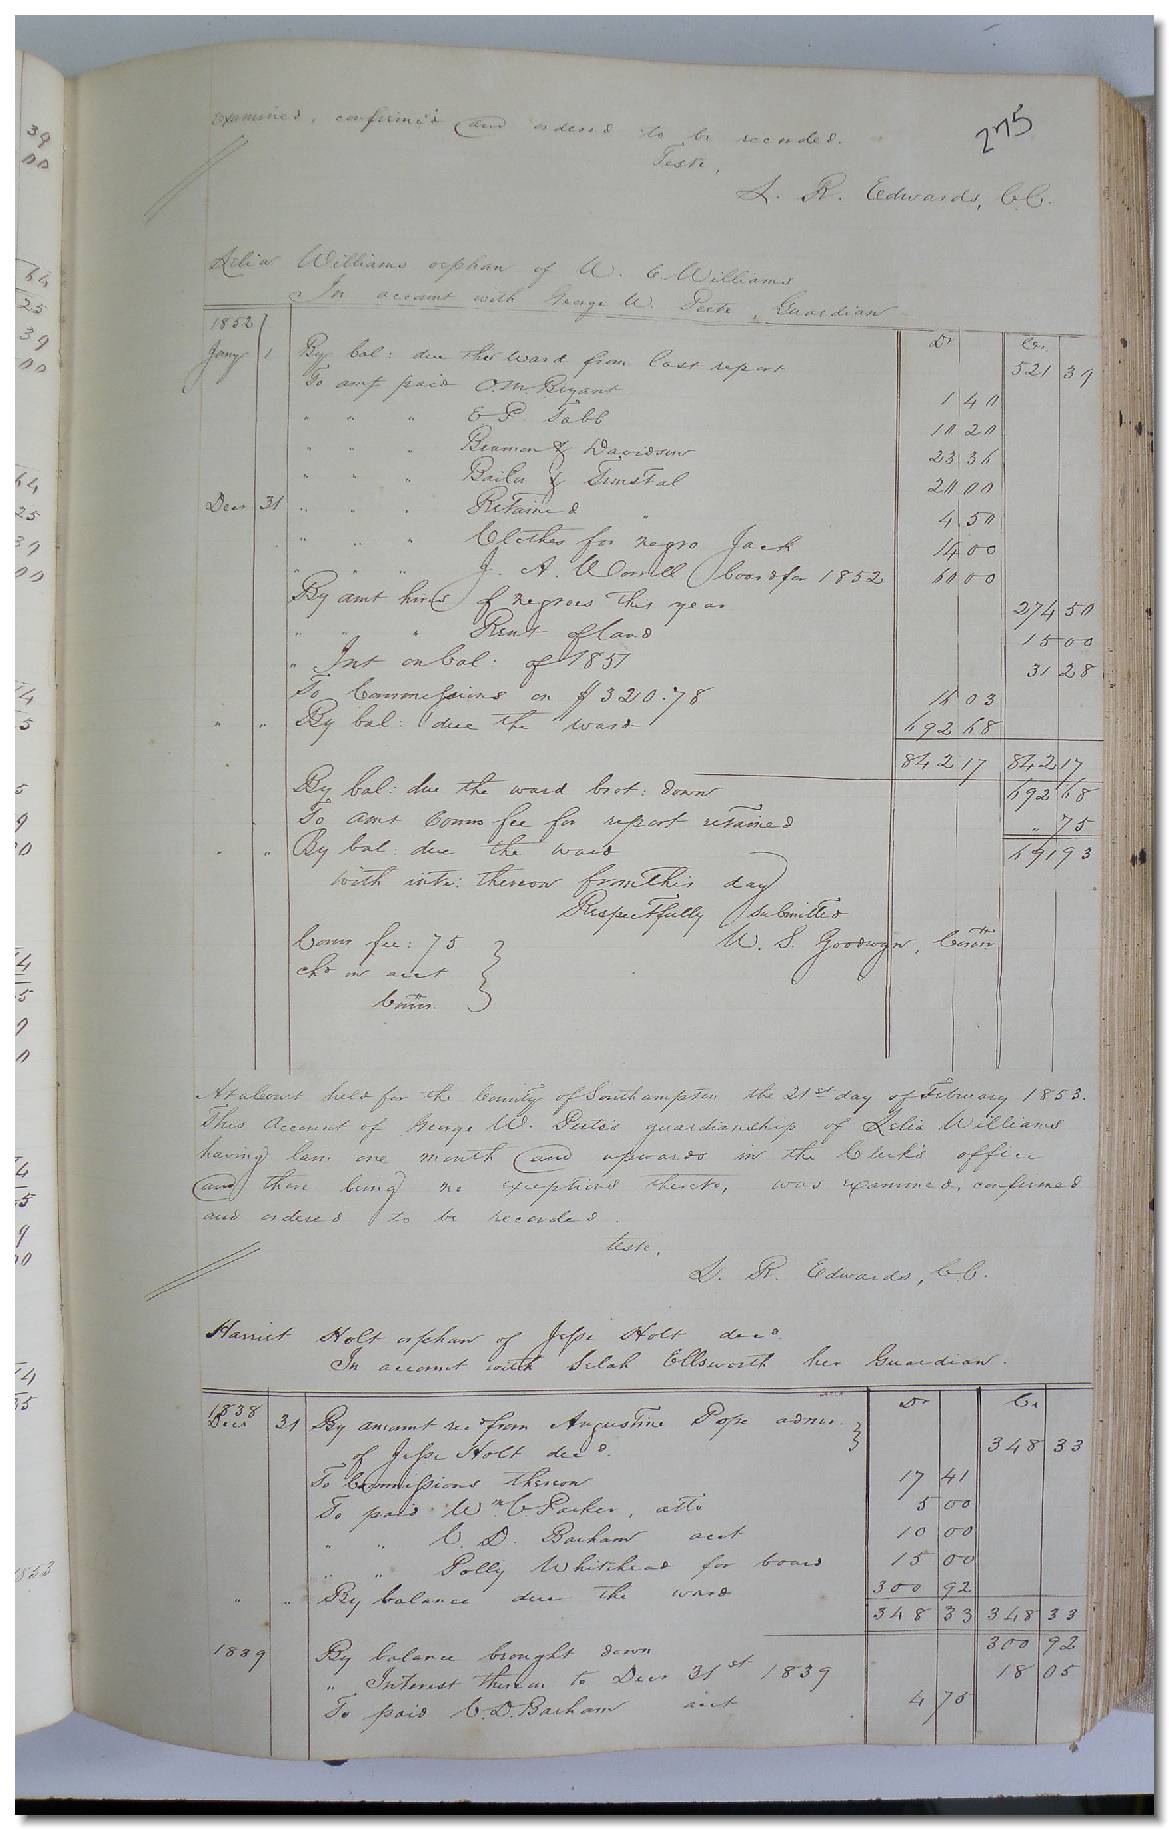 examined, confirmed and ordered to be recorded.
275
Teste,
L. R. Edwards, C.C.
Lelia Williams orphan of W. C Williams
In account with George W. Peete, Guardian
1852 Dr Cr.
Jany 1 By bal: due the ward from last report 521 39
To amt paid O. M. Bryant 1 40
" " " E P. Tabb 10 20
" " " Beamon & Davidson 23 36
" " " Bailey & Tunstal 20 00
Decr 31 " " " Retained " 4 50
" " " Clothes for negro Jack 14 00
" " " J. A. Worrell board for 1852 60 00
By amt hires of negroes this year 274 50
" " " Rent of land 15 00
" Int on bal: of 1851 31 28
To Commissions on $320.78 16 03
" " By bal: due the ward 692 68
842 17 842 17
By bal: due the ward brot: down 692 68
To amt Comm fee for report retained " 75
" " By bal: due the ward 691 93
with inte: thereon from this day
Respectfully submitted
Comr fee: 75 W. S. Goodwyn, Comr
chd in acct
Comr.
At a Court held for the County of Southampton the 21st day of February 1853.
This Account of George W. Peete's guardianship of Lelia Williams
having lain one month and upwards in the Clerk's office
and there being no exceptions thereto, was examined, confirmed
and ordered to be recorded.
teste,
L. R. Edwards, C.C.
Harriet Holt orphan of Jesse Holt decd.
In account with Selah Ellsworth her Guardian.
1838 Dr Cr
Decr 31 By amount recd from Augustine Pope admr.
of Jesse Holt decd. 348 33
To Commissions thereon 17 41
To paid Wm C Parker, atto 5 00
" " C. D. Barham acct 10 00
" " Polly Whitehead for board 15 00
" " By balance due the ward 300 92
348 33 348 33
1839 By balance brought down 300 92
" Interest thereon to Decr 31st 1839 18 05
To paid C. D. Barham acct 4 75